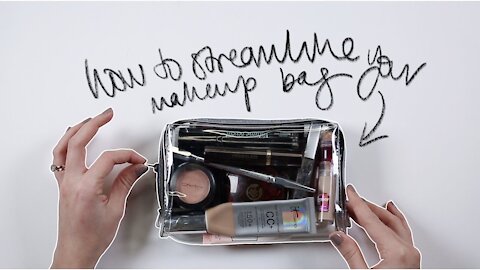 how to streamline your
makeup bag
CC+